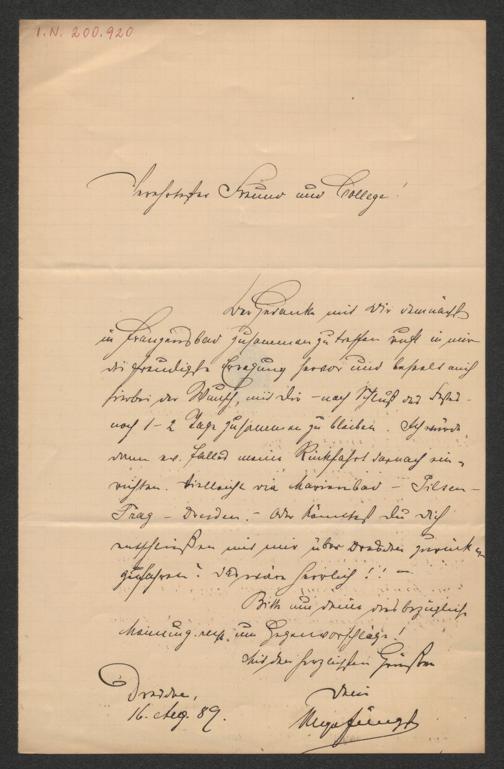 I.N. 200.920
Verehrtester Freund und College!
Der Gedanke mit Dir demnächst
in Franzensbad zusammen zu treffen ruft in mir
die freudigste Erregung hervor und beseelt mich
hierbei der Wunsch, mit Dir – nach Schluß des Festes –
noch 1–2 Tage zusammen zu bleiben. Ich würde
dann ev. falls meine Rückfahrt darnach ein-
richten. Vielleicht via Marienbad – Pilsen –
Prag – Dresden. – Oder könntest Du Dich
entschließen mit mir über Dresden zurück zu
zufahren? Das wäre herrlich!! –
Bitte um Deine diesbezügliche
Meinung resp. um Gegenvorschläge!
Mit den herzlichsten Grüßen
Dein
Dresden,
16. Aug. 89.
Hugo Jüngst